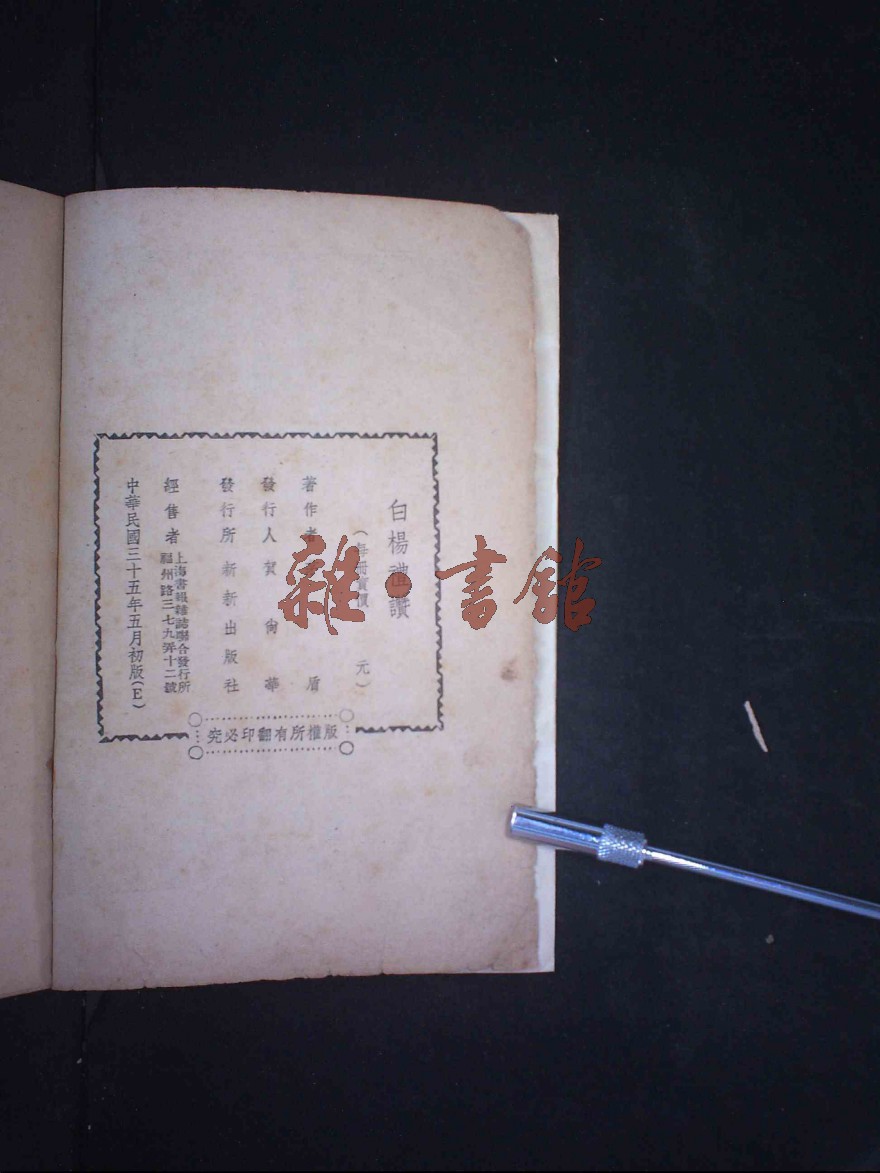 白楊禮讚
(每冊實價 元)
著作者 盾
發行人 賀尙華
發行所 新新出版社
經售者 上海書報雜誌聯合發行所
福州路三七九弄十二號
中華民國三十五年五月初版(E)
版權所有翻印必究
雜·書館